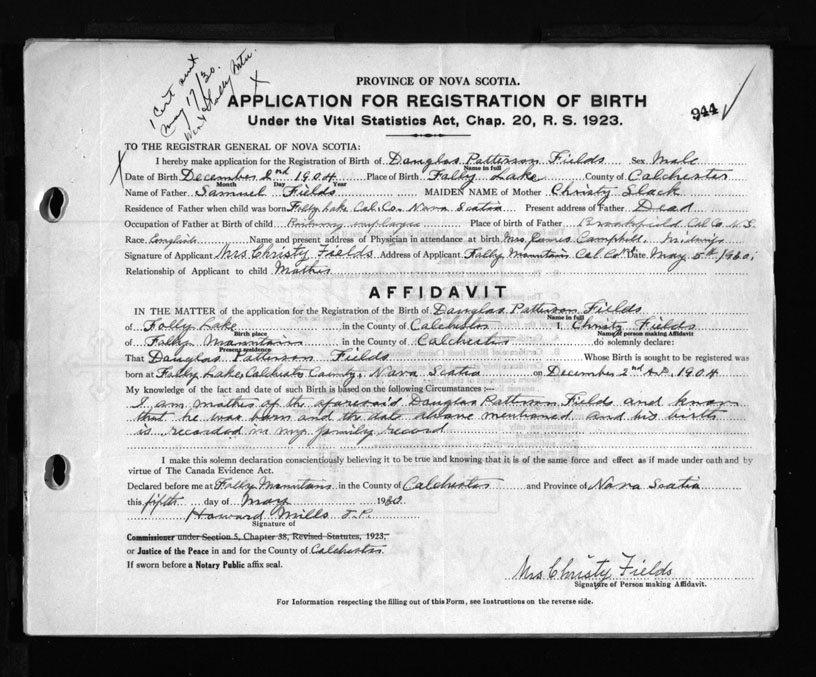 1 Cert sent
May 17/30.
X
944 ✓
PROVINCE OF NOVA SCOTIA.
APPLICATION FOR REGISTRATION OF BIRTH
Under the Vital Statistics Act, Chap. 20, R. S. 1923.
TO THE REGISTRAR GENERAL OF NOVA SCOTIA:
X
I hereby make application for the Registration of Birth of Douglas Patterson Fields Sex Male
Name in full
Date of Birth December 2nd 1904 Place of Birth Folly Lake County of Colchester
Month Day Year
Name of Father Samuel Fields MAIDEN NAME of Mother Christy Slack
Residence of Father when child was born Folly Lake Col. Co. Nova Scotia Present address of Father Dead
Occupation of Father at Birth of child Railway employee Place of birth of Father Brookfield Col Co N.S.
Race English Name and present address of Physician in attendance at birth Mrs. James Campbell, Midwife
Signature of Applicant Mrs Christy Fields Address of Applicant Folly Mountain Col. Co. NS Date May 5th 1930.
Relationship of Applicant to child Mother
AFFIDAVIT
IN THE MATTER of the application for the Registration of the Birth of Douglas Patterson Fields
Name in full
of Folly Lake in the County of Colchester I, Christy Fields
Birth place Name of person making Affidavit
of Folly Mountain in the County of Colchester do solemnly declare:
Present residence
That Douglas Patterson Fields Whose Birth is sought to be registered was
born at Folly Lake, Colchester County, Nova Scotia on December 2nd A.D. 1904
My knowledge of the fact and date of such Birth is based on the following Circumstances :—
I am mother of the aforesaid Douglas Patterson Fields and know
that he was born and the date above mentioned and his birth
is recorded in my family record
I make this solemn declaration conscientiously believing it to be true and knowing that it is of the same force and effect as if made under oath and by
virtue of The Canada Evidence Act.
Declared before me at Folly Mountain in the County of Colchester and Province of Nova Scotia
this fifth day of May 1930.
Howard Mills J.P.
Signature of
Commissioner under Section 5, Chapter 38, Revised Statutes, 1923,
or Justice of the Peace in and for the County of Colchester
If sworn before a Notary Public affix seal.
Mrs Christy Fields
Signature of Person making Affidavit.
For Information respecting the filling out of this Form, see Instructions on the reverse side.